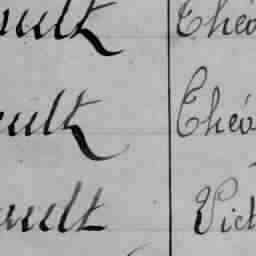 ault Théo
ault Théo
ault Vict